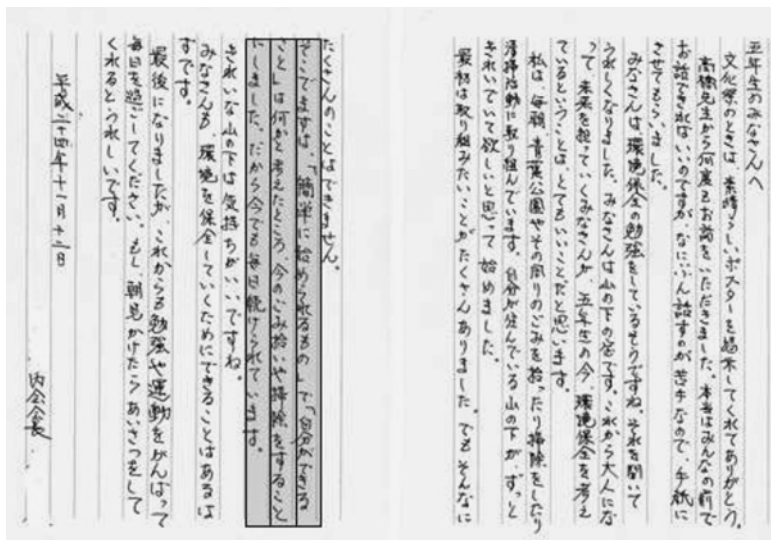 五年生のみなさんへ
文化祭のときは、素晴らしいポスターを掲示してくれてありがとう。
高橋先生から何度もお話をいただきました。本当はみんなの前で
お話できればいいのですが、なにぶん話すのが苦手なので、手紙に
させてもらいました。
みなさんは、環境保全の勉強をしているそうですね。それを聞いて
うれしくなりました。みなさんは山の下の宝です。これから大人にな
って、未来を担っていくみなさんが、五年生の今、環境保全を考え
ているということはとてもいいことだと思います。
私は、毎朝、青葉公園やその周りのごみを拾ったり掃除をしたり
清掃活動に取り組んでいます。自分が住んでいる山の下が、ずっと
きれいでいて欲しいと思って始めました。
最初は取り組みたいことがたくさんありました。でもそんなに
たくさんのことはできません。
そこでまずは、「簡単に始められるもの」で「自分ができる
こと」は何かと考えたところ、今のごみ拾いや掃除をすること
にしました。だから今でも毎日続けられています。
きれいな山の下は気持ちがいいですね。
みなさんも、環境を保全していくためにできることはあるは
ずです。
最後になりましたが、これからも勉強や運動をがんばって
毎日を過ごしてください。もし、朝見かけたらあいさつをして
くれるとうれしいです。
平成二十四年十一月十二日
内会長